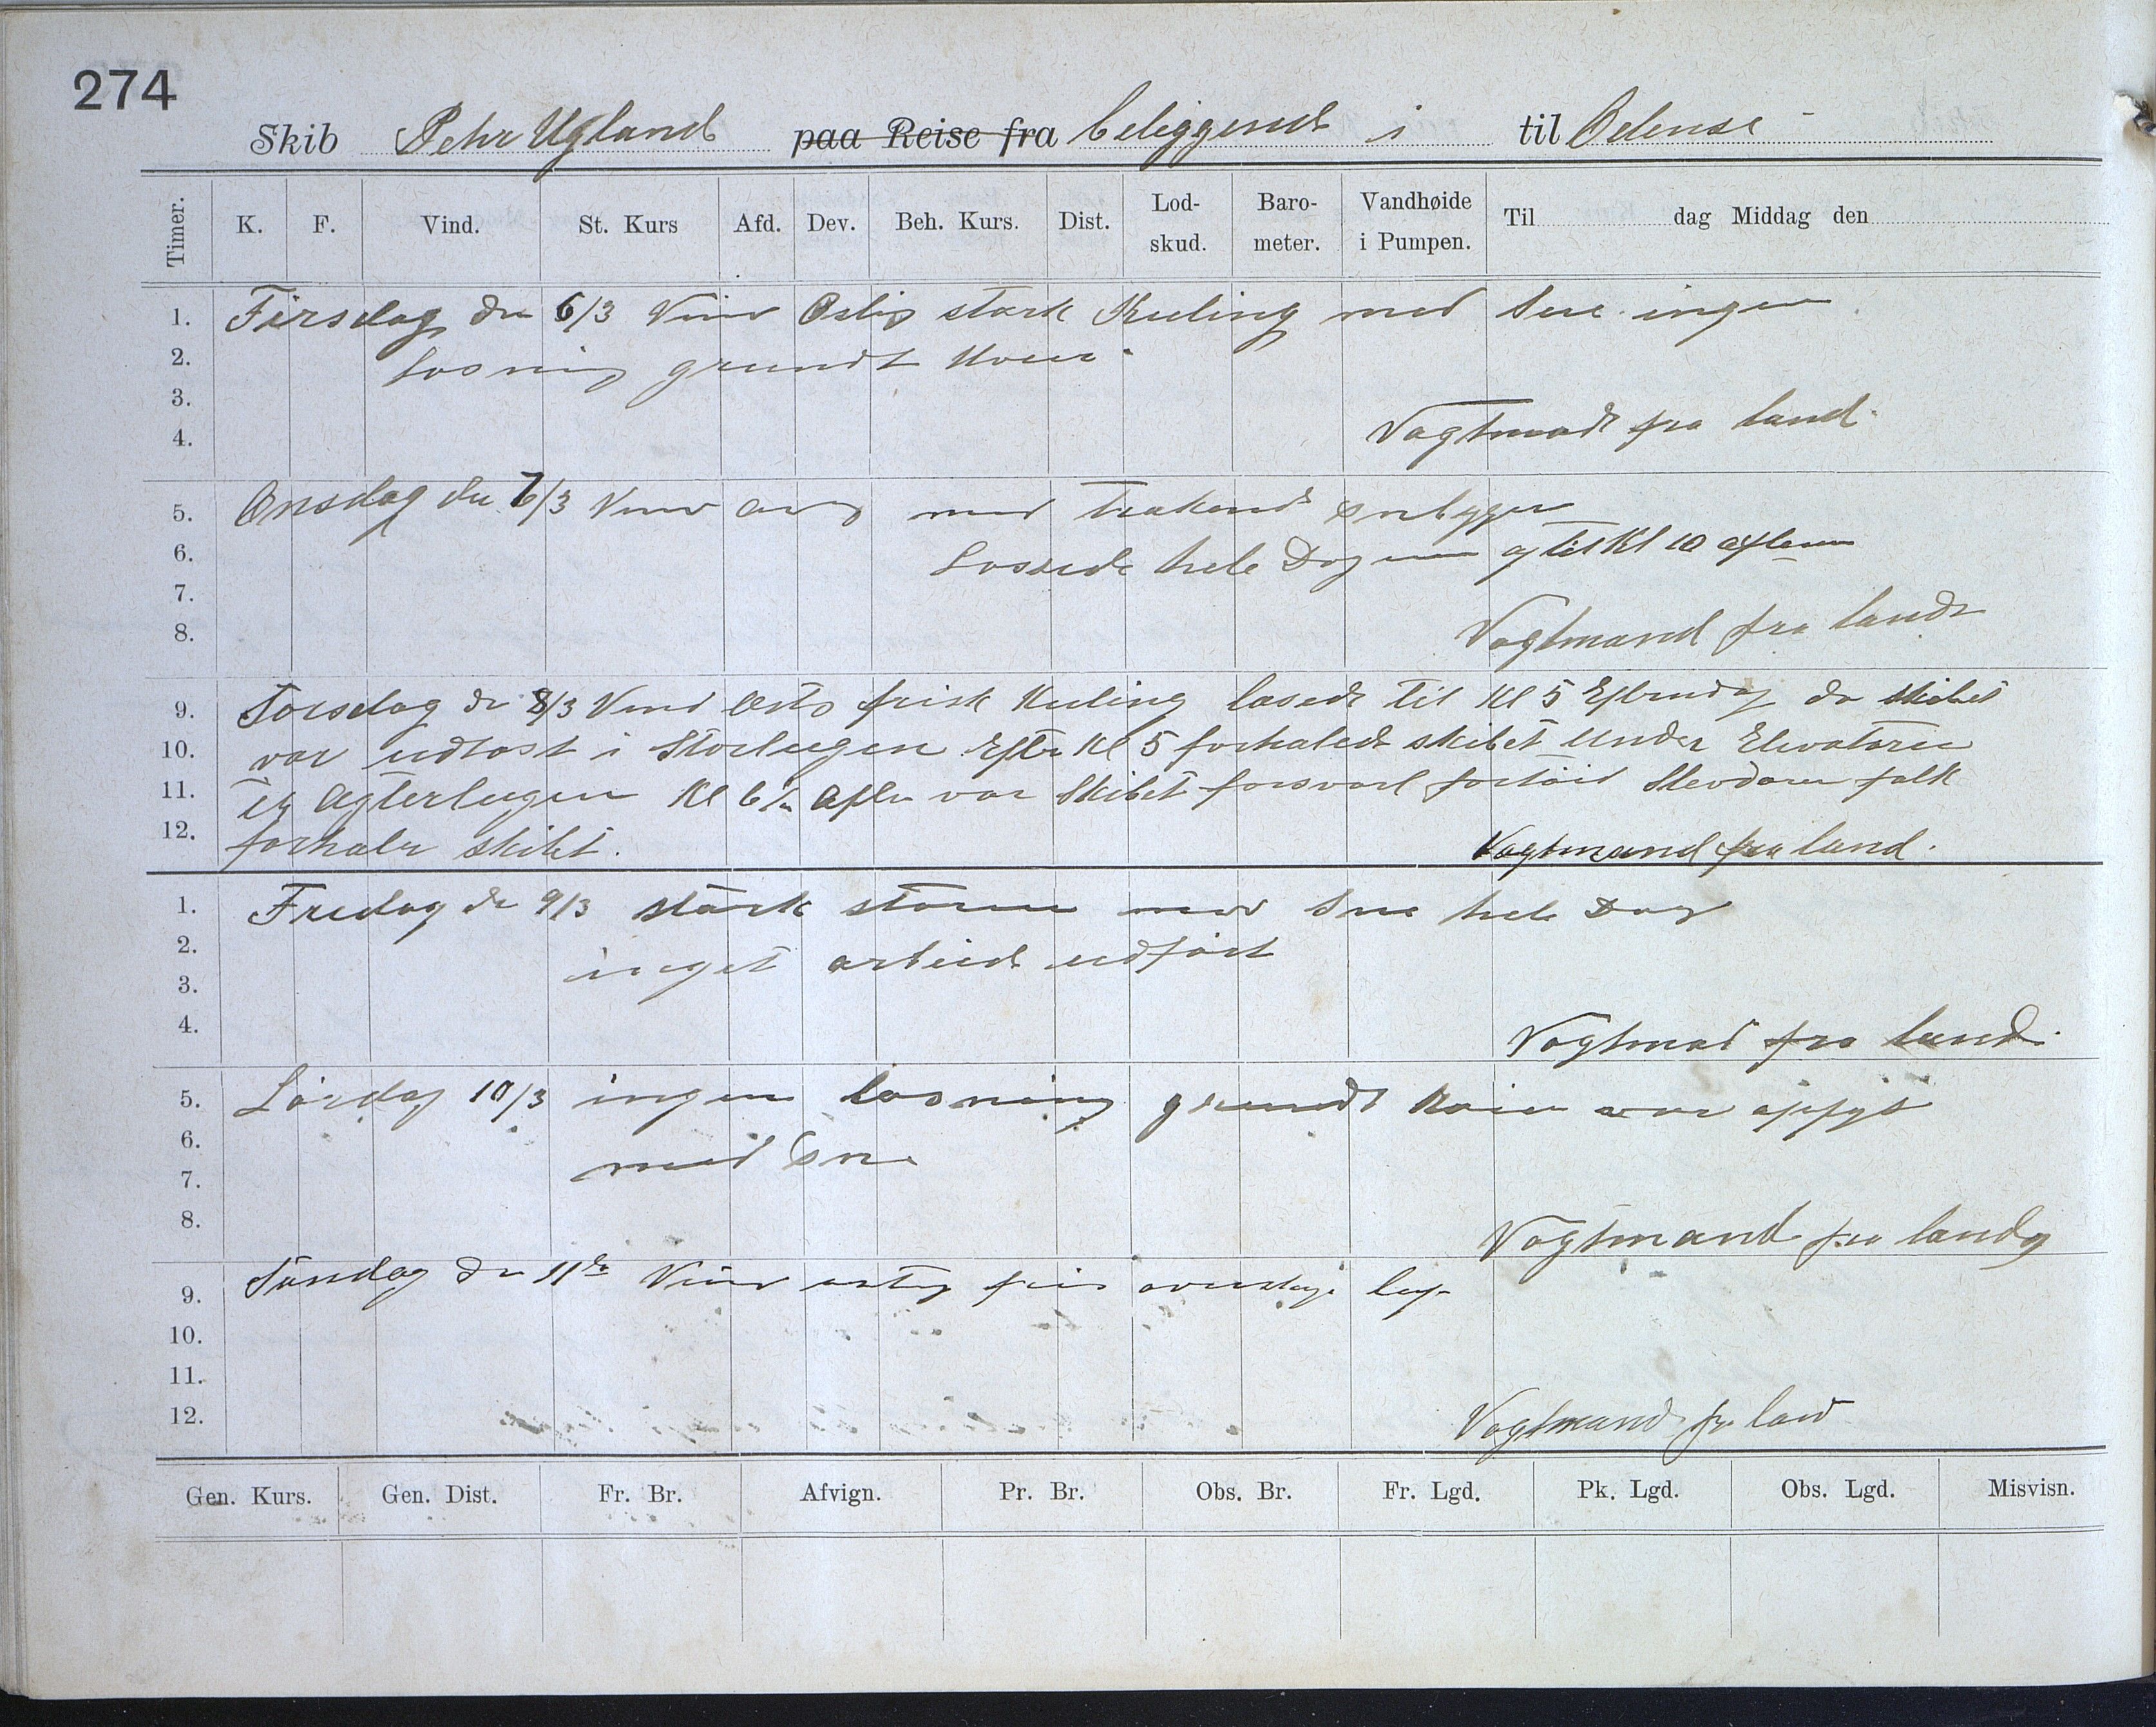 274
Skib Pehr Ugland paa Reise fra beliggende i til Odense
Timer. K. F. Vind. St. Kurs Afd. Dev. Beh. Kurs. Dist. Lod-skud. Baro-meter. Vandhøide i Pumpen. Til dag Middag den
1. Tirsdag den 6/3 Vind Ostlig stark Kuling med Sne ingen
2. losning grundt
3.
4. Vagtmand fra land.
5. Onsdag den 7/3 Vind med
6. Lossede hele Dagen og til Kl 10 aften
7.
8. Vagtmand fra land
9. Torsdag de 8/3 Vind Østl frisk Kuling losede til Kl 5 Eftmidag da skibet
10. var udlost i Storlugen Efter Kl 5 forhalede skibet under Elevatoren
11. til Agterlugen Kl 6 1/2 Aften var Skibet forsvarl fortöid Stevdoren folk
12. forhaler skibet. Vagtmand fra land.
1. Fredag de 9/3 stark storm med Sne hele Dag
2. inget arbeide udfört
3.
4. Vagtmad fra land.
5. Lördag 10/3 ingen losning grundt Kaien var opfyt
6. med Sne
7.
8. Vagtmand fra land
9. Söndag den 11te Vind ostlig
10.
11.
12. Vagtmand fra land
Gen. Kurs. Gen. Dist. Fr. Br. Afvign. Pr. Br. Obs. Br. Fr. Lgd. Pk. Lgd. Obs. Lgd. Misvisn.